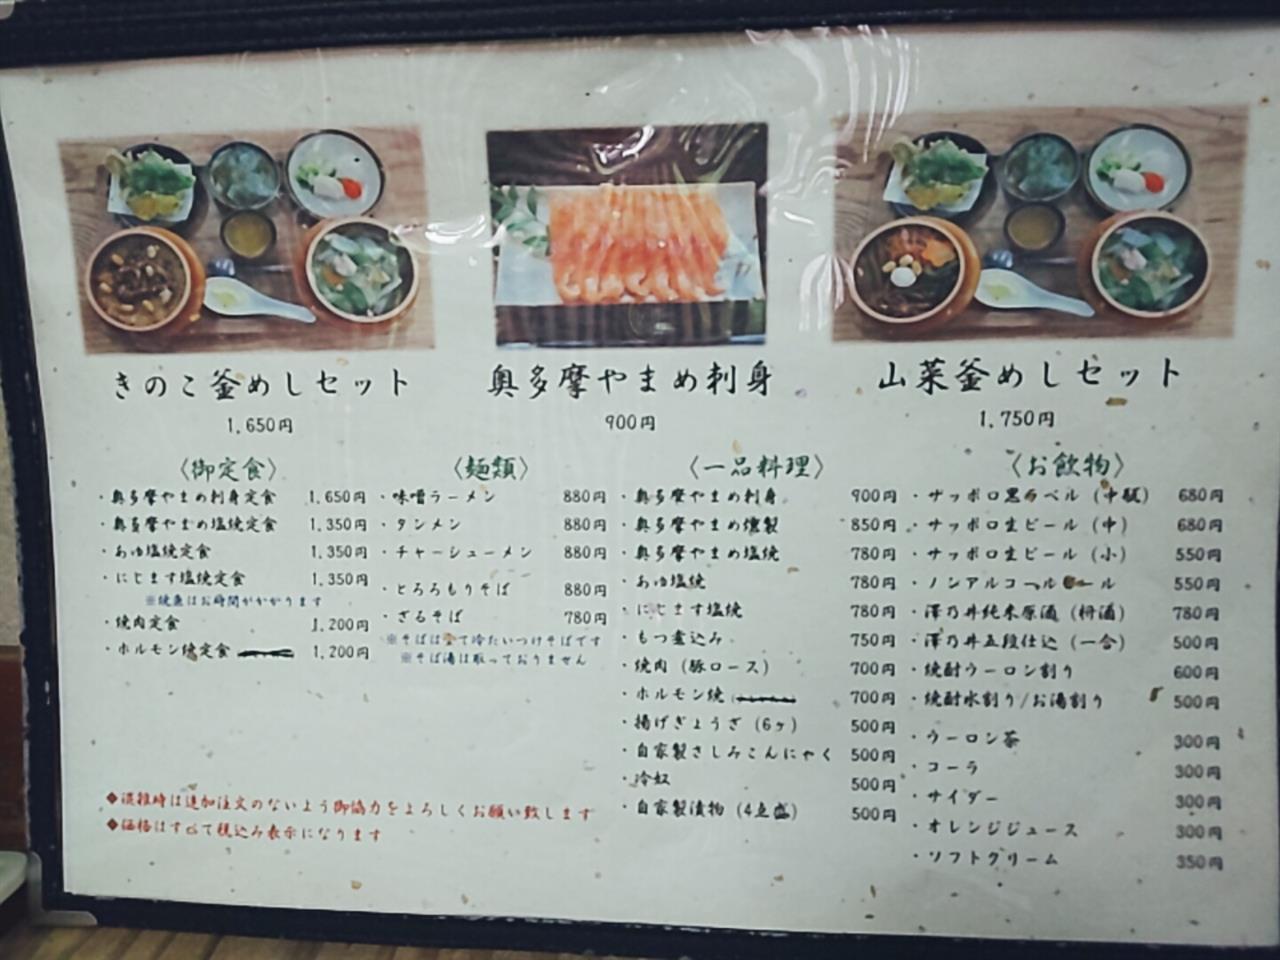 きのこ釜めしセット
1,650円
奥多摩やまめ刺身
900円
山菜釜めしセット
1,750円
〈御定食〉
・奥多摩やまめ刺身定食 1,650円
・奥多摩やまめ塩焼定食 1,350円
・あゆ塩焼定食 1,350円
・にじます塩焼定食 1,350円
※焼魚はお時間がかかります
・焼肉定食 1,200円
・ホルモン焼定食 1,200円
〈麺類〉
・味噌ラーメン 880円
・タンメン 880円
・チャーシューメン 880円
・とろろもりそば 880円
・ざるそば 780円
※そばは全て冷たいつけそばです
※そば湯は取っておりません
〈一品料理〉
・奥多摩やまめ刺身 900円
・奥多摩やまめ燻製 850円
・奥多摩やまめ塩焼 780円
・あゆ塩焼 780円
・にじます塩焼 780円
・もつ煮込み 750円
・焼肉（豚ロース） 700円
・ホルモン焼 700円
・揚げぎょうざ（6ヶ） 500円
・自家製さしみこんにゃく 500円
・冷奴 500円
・自家製漬物（4点盛） 500円
〈お飲物〉
・サッポロ黒ラベル（中瓶） 680円
・サッポロ生ビール（中） 680円
・サッポロ生ビール（小） 550円
・ノンアルコールビール 550円
・澤乃井純米原酒（枡酒） 780円
・澤乃井五段仕込（一合） 500円
・焼酎ウーロン割り 600円
・焼酎水割り/お湯割り 500円
・ウーロン茶 300円
・コーラ 300円
・サイダー 300円
・オレンジジュース 300円
・ソフトクリーム 350円
◆混雑時は追加注文のないよう御協力をよろしくお願い致します
◆価格はすべて税込み表示になります